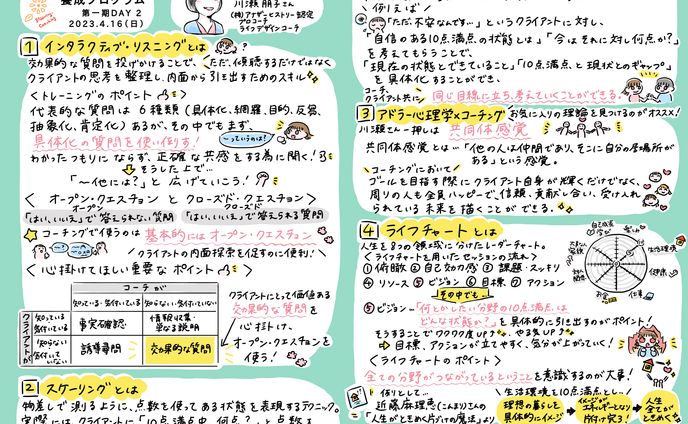 養成プログラム
第一期DAY2
2023.4.16(日)
川瀬 朋子さん
(株)アナザーヒストリー認定
プロコーチ
ライフデザインコーチ
1 インタラクティブ・リスニングとは
効果的な質問を投げかけることで、ただ、傾聴するだけではなく
クライアントの思考を整理し、内面から引き出すためのスキル
〈トレーニングのポイント〉
代表的な質問は 6種類(具体化、網羅、目的、反芻、
抽象化、肯定化)あるが、その中でもまず、
具体化の質問を使い倒す!
~っていうのは?
わかったつもりにならず、正確な共感をする為に聞く!
そうした上で…
「~他には?」と広げていこう!
〈オープン・クエスチョン と クローズド・クエスチョン〉
オープン
クローズド
「はい、いいえ」で答えられない質問
「はい、いいえ」で答えられる質問
コーチングで使うのは 基本的にはオープン・クエスチョン
クライアントの内面探索を促すのに便利!
〈心掛けてほしい重要なポイント〉
コーチが
知っている・気付いている
知らない・気付いていない
クライアントが
知っている
気付いている
事実確認
情報収集・
単なる説明
知らない
気付いていない
誘導尋問
効果的な質問
クライアントにとって価値ある
効果的な質問を
心掛け、
オープン・クエスチョンを
使う!
2 スケーリングとは
物差しで測るように、点数を使ってある状態を表現するテクニック。
実際には クライアントに「10点満点中、何点?」と点数を
例えば
「ただ不安なんです…」というクライアントに対し、
「自信のある10点満点の状態とは」「今はそれに対し何点か?」
を考えてもらうことで、
「現在の状態とできていること」「10点満点と現状とのギャップ」
を具体化することができ、
コーチ、
クライアント共に 同じ目線に立ち、考えていくことができる。
3 アドラー心理学×コーチング
お気に入りの理論を見つけるのがオススメ!
川瀬さん一押しは 共同体感覚
共同体感覚とは…「他の人は仲間であり、そこに自分の居場所が
ある」という感覚。
〈コーチングにおいて〉
ゴールを目指す際にクライアント自身が輝くだけでなく、
周りの人も全員ハッピーで、信頼、貢献し合い、受け入れ
られている未来を描くことができる。
4 ライフチャートとは
人生を8つの領域に分けたレーダーチャート。
〈ライフチャートを用いたセッションの流れ〉
①俯瞰 ②自己効力感 ③課題・スッキリ
④リソース ⑤ビジョン ⑥目標 ⑦アクション
その中でも…
⑤ビジョン…「何とかしたい分野の10点満点は
どんな状態か?」を具体的に引き出すのがポイント!
そうすることでワクワク度UP、やる気UP
目標、アクションが立てやすく、気分が上がっていく!
〈ライフチャートのポイント〉
全ての分野がつながっているということを意識するのが大事!
例として…
近藤麻理恵(こんまり)さんの
「人生がときめく片づけの魔法」より
生活環境を10点満点とし…
理想の暮らしを
具体的にイメージ
人生
全てが
ときめく
生活環境
健康
お金
仕事